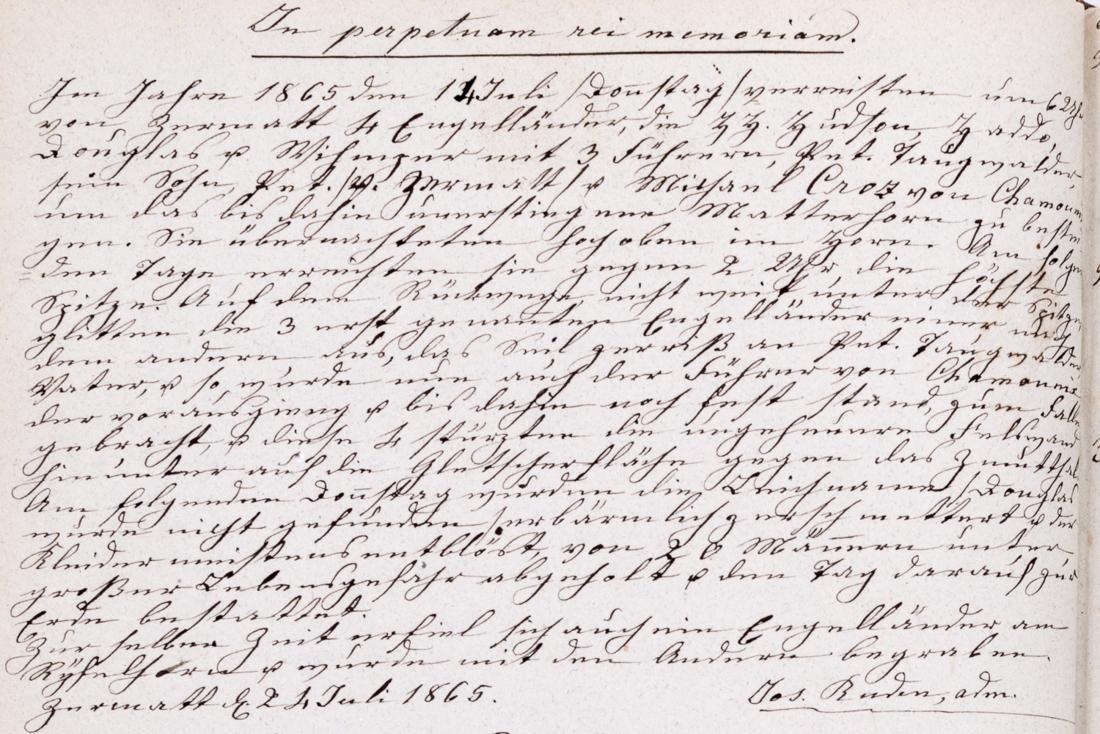 In perpetuam rei memoriam.
Im Jahre 1865 den 14 Juli /Donstag/ verreisten um 6 Uhr
von Zermatt 4 Engelländer, die HH. Hudson, Haddo,
Douglas u Wihmper mit 3 Führern, Pet. Taugwalder,
sein Sohn, Pet. /v. Zermatt/ u Michael Croz von Chamouni,
um das bis dahin unerstiegene Matterhorn zu bestei
gen. Sie übernachteten hoch oben im Horn. Am folgen
den Tage erreichten sie gegen 2 Uhr, die höchste
Spitze. Auf dem Rückwege, nicht weit unter der Spitze,
glitten die 3 erst genanten Engelländer einer nach
dem andern aus, das Seil zerriß an Pet. Taugwalder
Vater, u so wurde nun auch der Führer von Chamounie
der vorausgieng u bis dahin noch fest stand, zum Falle
gebracht, u diese 4 stürzten die ungeheuere Felswand
hinunter auf die Gletscherfläche gegen das Zmutthal.
Am folgenden Donstag wurden die Leichname /Douglas
wurde nicht gefunden/ erbärmlich zerschmettert u der
Kleider meistens entblöst, von 28 Mänern unter
großer Lebensgefahr abgeholt u den Tag darauf zur
Erde bestattet.
Zur selben Zeit erfiel sich auch ein Engelländer am
Ryffelhorn u wurde mit den Andern begraben.
Zermatt d. 24 Juli 1865.
Jos. Ruden, adm.